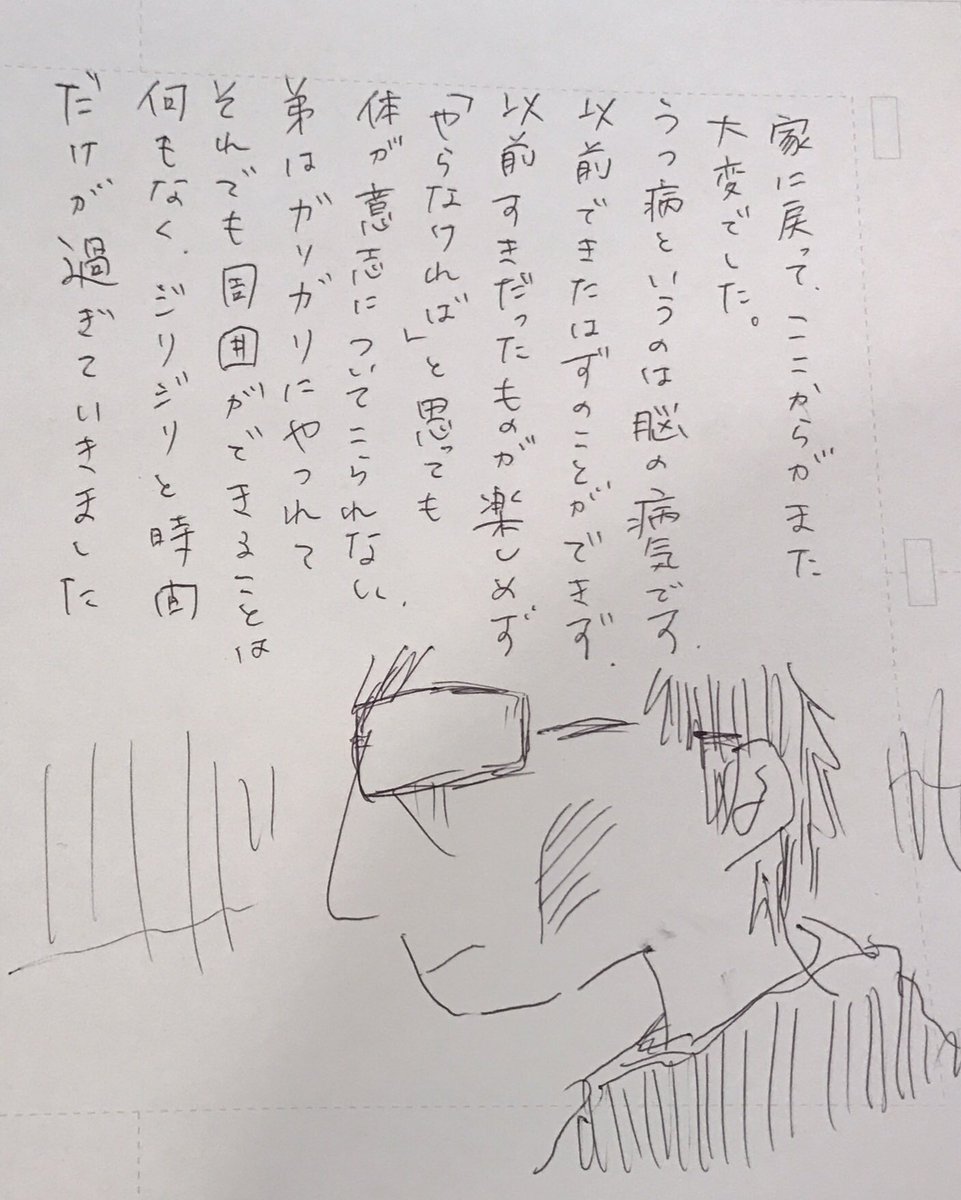 家に戻って、ここからがまた
大変でした。
うつ病というのは脳の病気です。
以前できたはずのことができず、
以前すきだったものが楽しめず
「やらなければ」と思っても
体が意志についてこられない、
弟はガリガリにやつれて
それでも周囲ができることは
何もなく、ジリジリと時間
だけが過ぎていきました